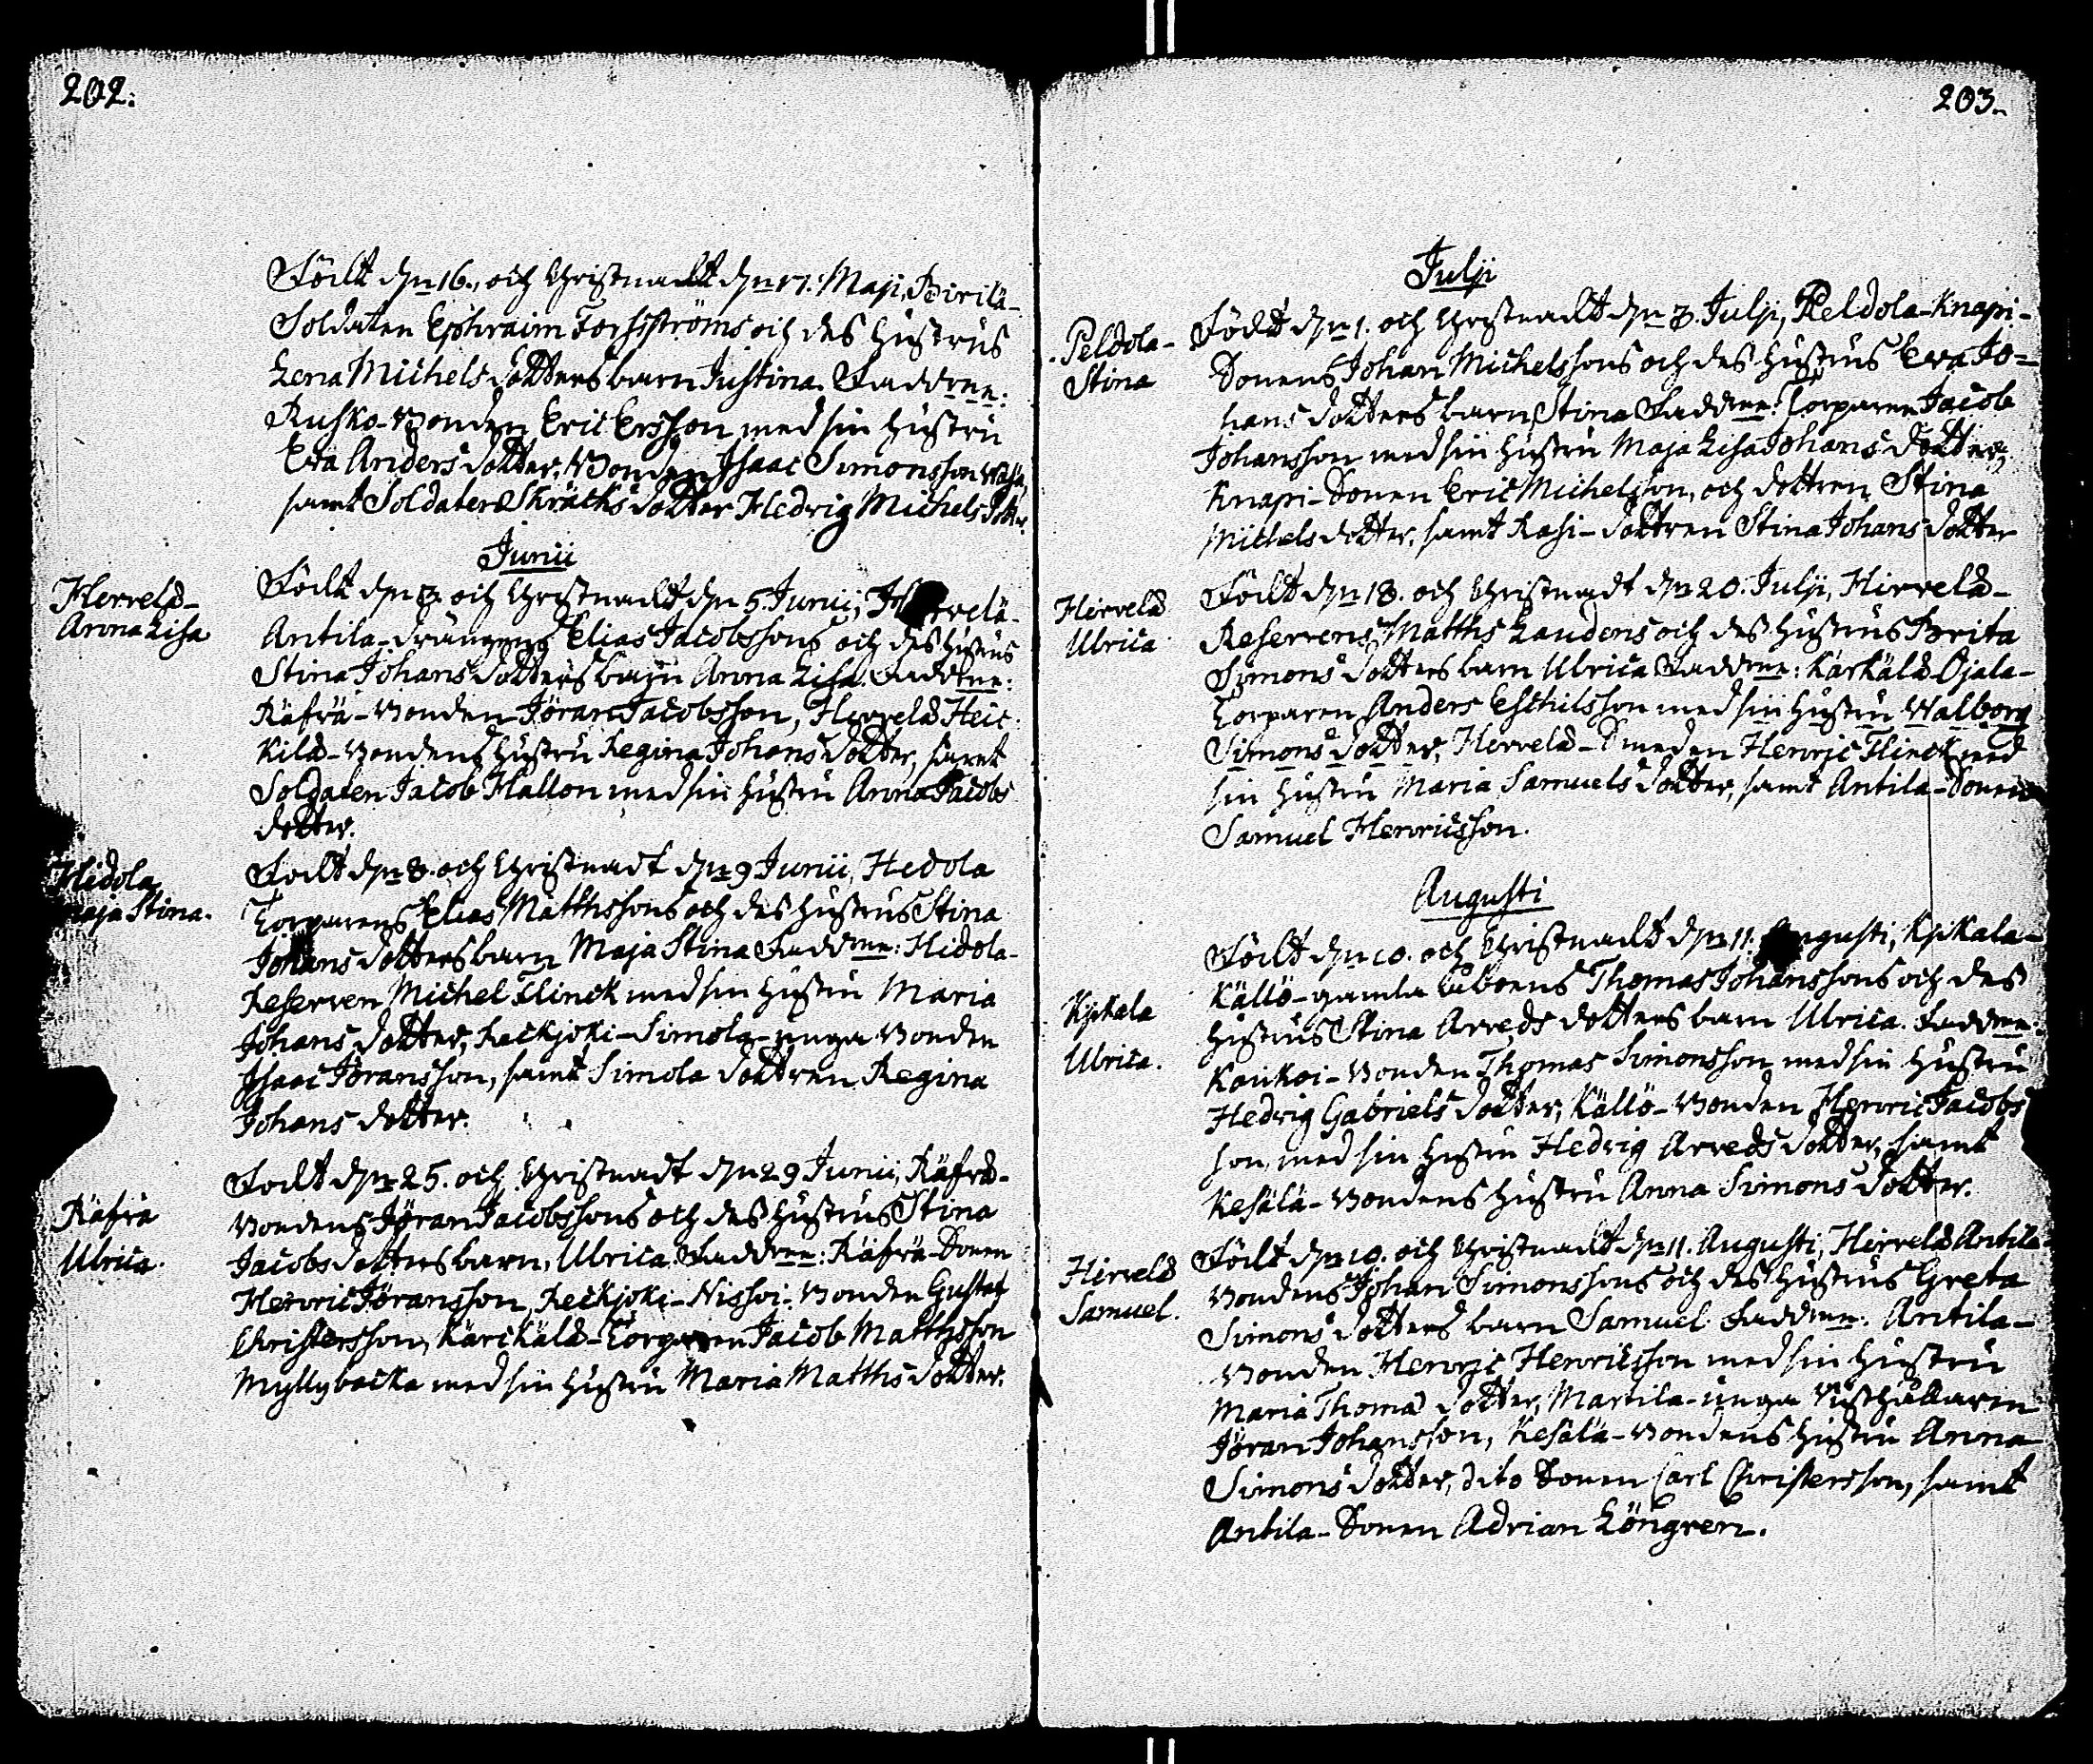 202.
Födt dn 16., och Christnadt dn 17. Maji, Pirilä-
Soldaten Ephraim Forsströms och des hustrus
Lena Michels dotters barn Justina. Faddrne:
Rusko-Bonden Eric Ersson med sin hustru
Eva Anders dotter, Bonden Isaac Simonsson
samt Soldaten Skräcks dotter Hedvig Michels dotter.
Junii
Hervelä-
Anna Lisa
Födt dn 3. och Christnadt dn 5. Junii, Hervelä-
Antila-drängens Elias Jacobssons och des hustrus
Stina Johans dotters barn Anna Lisa. Faddrne:
Räfvä-Bonden Jöran Jacobsson, Hervelä Heic-
kilä-Bondens hustru Regina Johans dotter, samt
Soldaten Jacob Hallon med sin hustru Anna Jacobs
dotter.
Hidola
Maja Stina.
Födt dn 8. och Christnadt dn 9 Junii, Hedola
Torparens Elias Matthssons och des hustrus Stina
Johans dotters barn Maja Stina Faddrne: Hidola-
Reserven Michel Flinck med sin hustru Maria
Johans dotter, Leckjoki-Simola-unga Bonden
Isaac Jöransson, samt Simola dottren Regina
Johans dotter.
Räfvä
Ulrica.
Födt dn 25. och Christnadt dn 29 Junii, Räfvä-
Bondens Jöran Jacobssons och des hustrus Stina
Jacobs dotters barn, Ulrica. Faddrne: Räfvä-Sonen
Henric Jöransson, Leckjoki-Nissoi-Bonden Gustaf
Christersson, Kärckälä-Torparen Jacob Matthsson
Myllybacka med sin hustru Maria Matths dotter.
203.
Julji
Peldola-
Stina
Födt dn 1. och Christnadt dn 3. Julji, Peldola-Knapi-
Sonens Johan Michelssons och des hustrus Eva Jo=
hans dotters barn Stina Faddrne: Torparen Jacob
Johansson med sin hustru Maja Lisa Johans dotter,
Knapi-Sonen Eric Michelsson, och dottren Stina
Michels dotter, samt Rasi-dottren Stina Johans dotter
Hirvelä
Ulrica
Födt dn 18. och Christnadt dn 20. Julji, Hirvelä-
Reservens Matths Landens och des hustrus Brita
Simons dotters barn Ulrica Faddrne: Kärkälä Ojala-
Torparen Anders Eschilsson med sin hustru Walborg
Simons dotter, Hervelä-Smeden Henric Flinck med
sin hustru Maria Samuels dotter, samt Antila-Sonen
Samuel Henricsson.
Augusti
Kjikala
Ulrica.
Födt dn 10. och Christnadt dn 11. Augusti, Kjikala-
Källö-gamla Åboens Thomas Johanssons och des
hustrus Stina Arveds dotters barn Ulrica. Faddrne:
Koukoi-Bonden Thomas Simonsson med sin hustru
Hedvig Gabriels dotter, Källö-Bonden Henric Jacobs
son, med sin hustru Hedvig Arveds dotter, samt
Kesälä-Bondens hustru Anna Simons dotter.
Hirvelä
Samuel.
Födt dn 10. och Christnadt dn 11. Augusti, Hirvelä Antila
Bondens Johan Simonssons och des hustrus Greta
Simons dotters barn Samuel. Faddrne: Antila-
Bonden Henric Henricsson med sin hustru
Maria Thomæ dotter, Martila-unga Rusthållaren
Jöran Johansson, Kesälä-Bondens hustru Anna
Simons dotter, dito Sonen Carl Christersson, samt
Antila-Sonen Adrian Löngren.